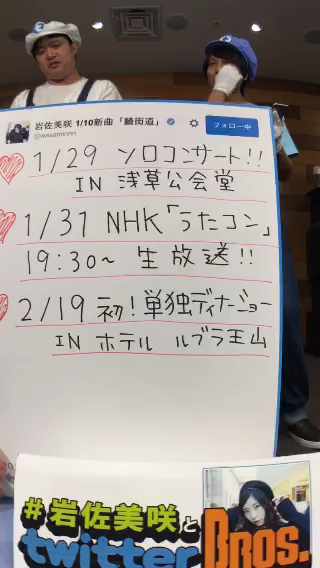 岩佐美咲 1/10新曲「鯖街道」
フォロー中
1/29 ソロコンサート!!
IN 浅草公会堂
1/31 NHK「うたコン」
19:30~ 生放送!!
2/19 初!単独ディナーショー
IN ホテル ルブラ王山
#岩佐美咲と
twitter BROS.